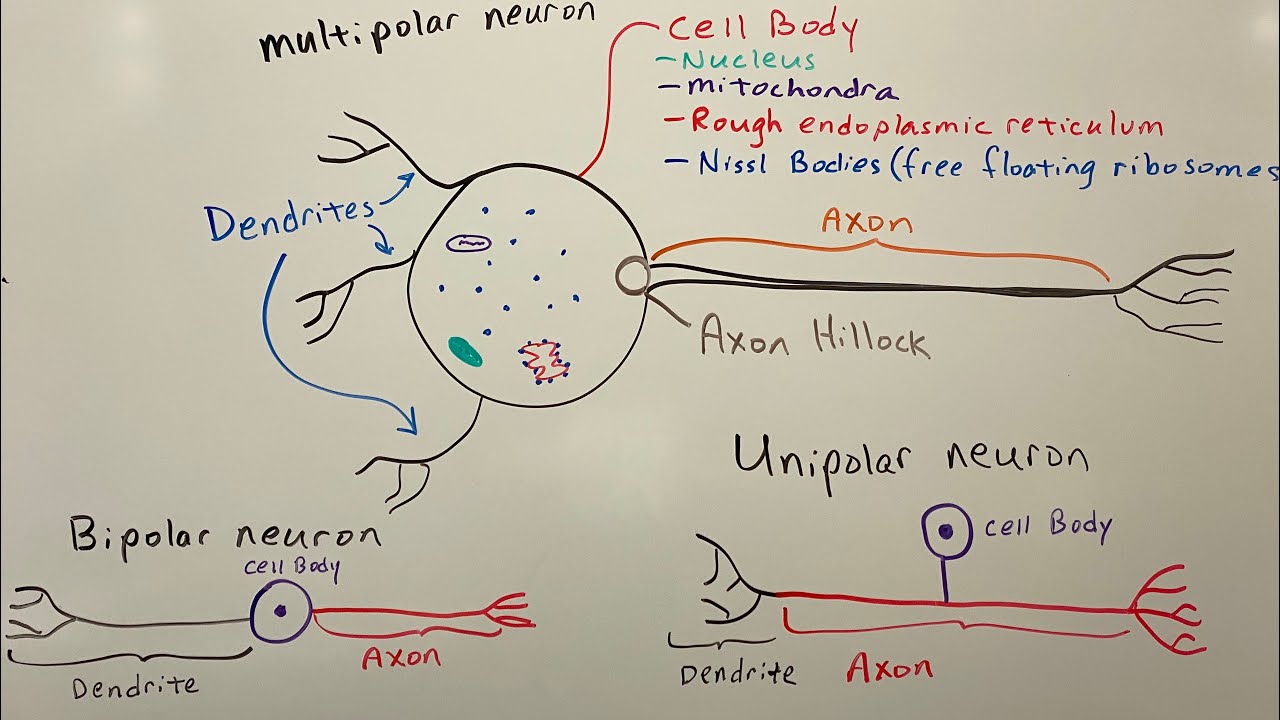 multipolar neuron
Cell Body
- Nucleus
- mitochondra
- Rough endoplasmic reticulum
- Nissl Bodies (free floating ribosomes
Dendrites
Axon
Axon Hillock
Unipolar neuron
Cell Body
Dendrite
Axon
Bipolar neuron
Cell Body
Axon
Dendrite